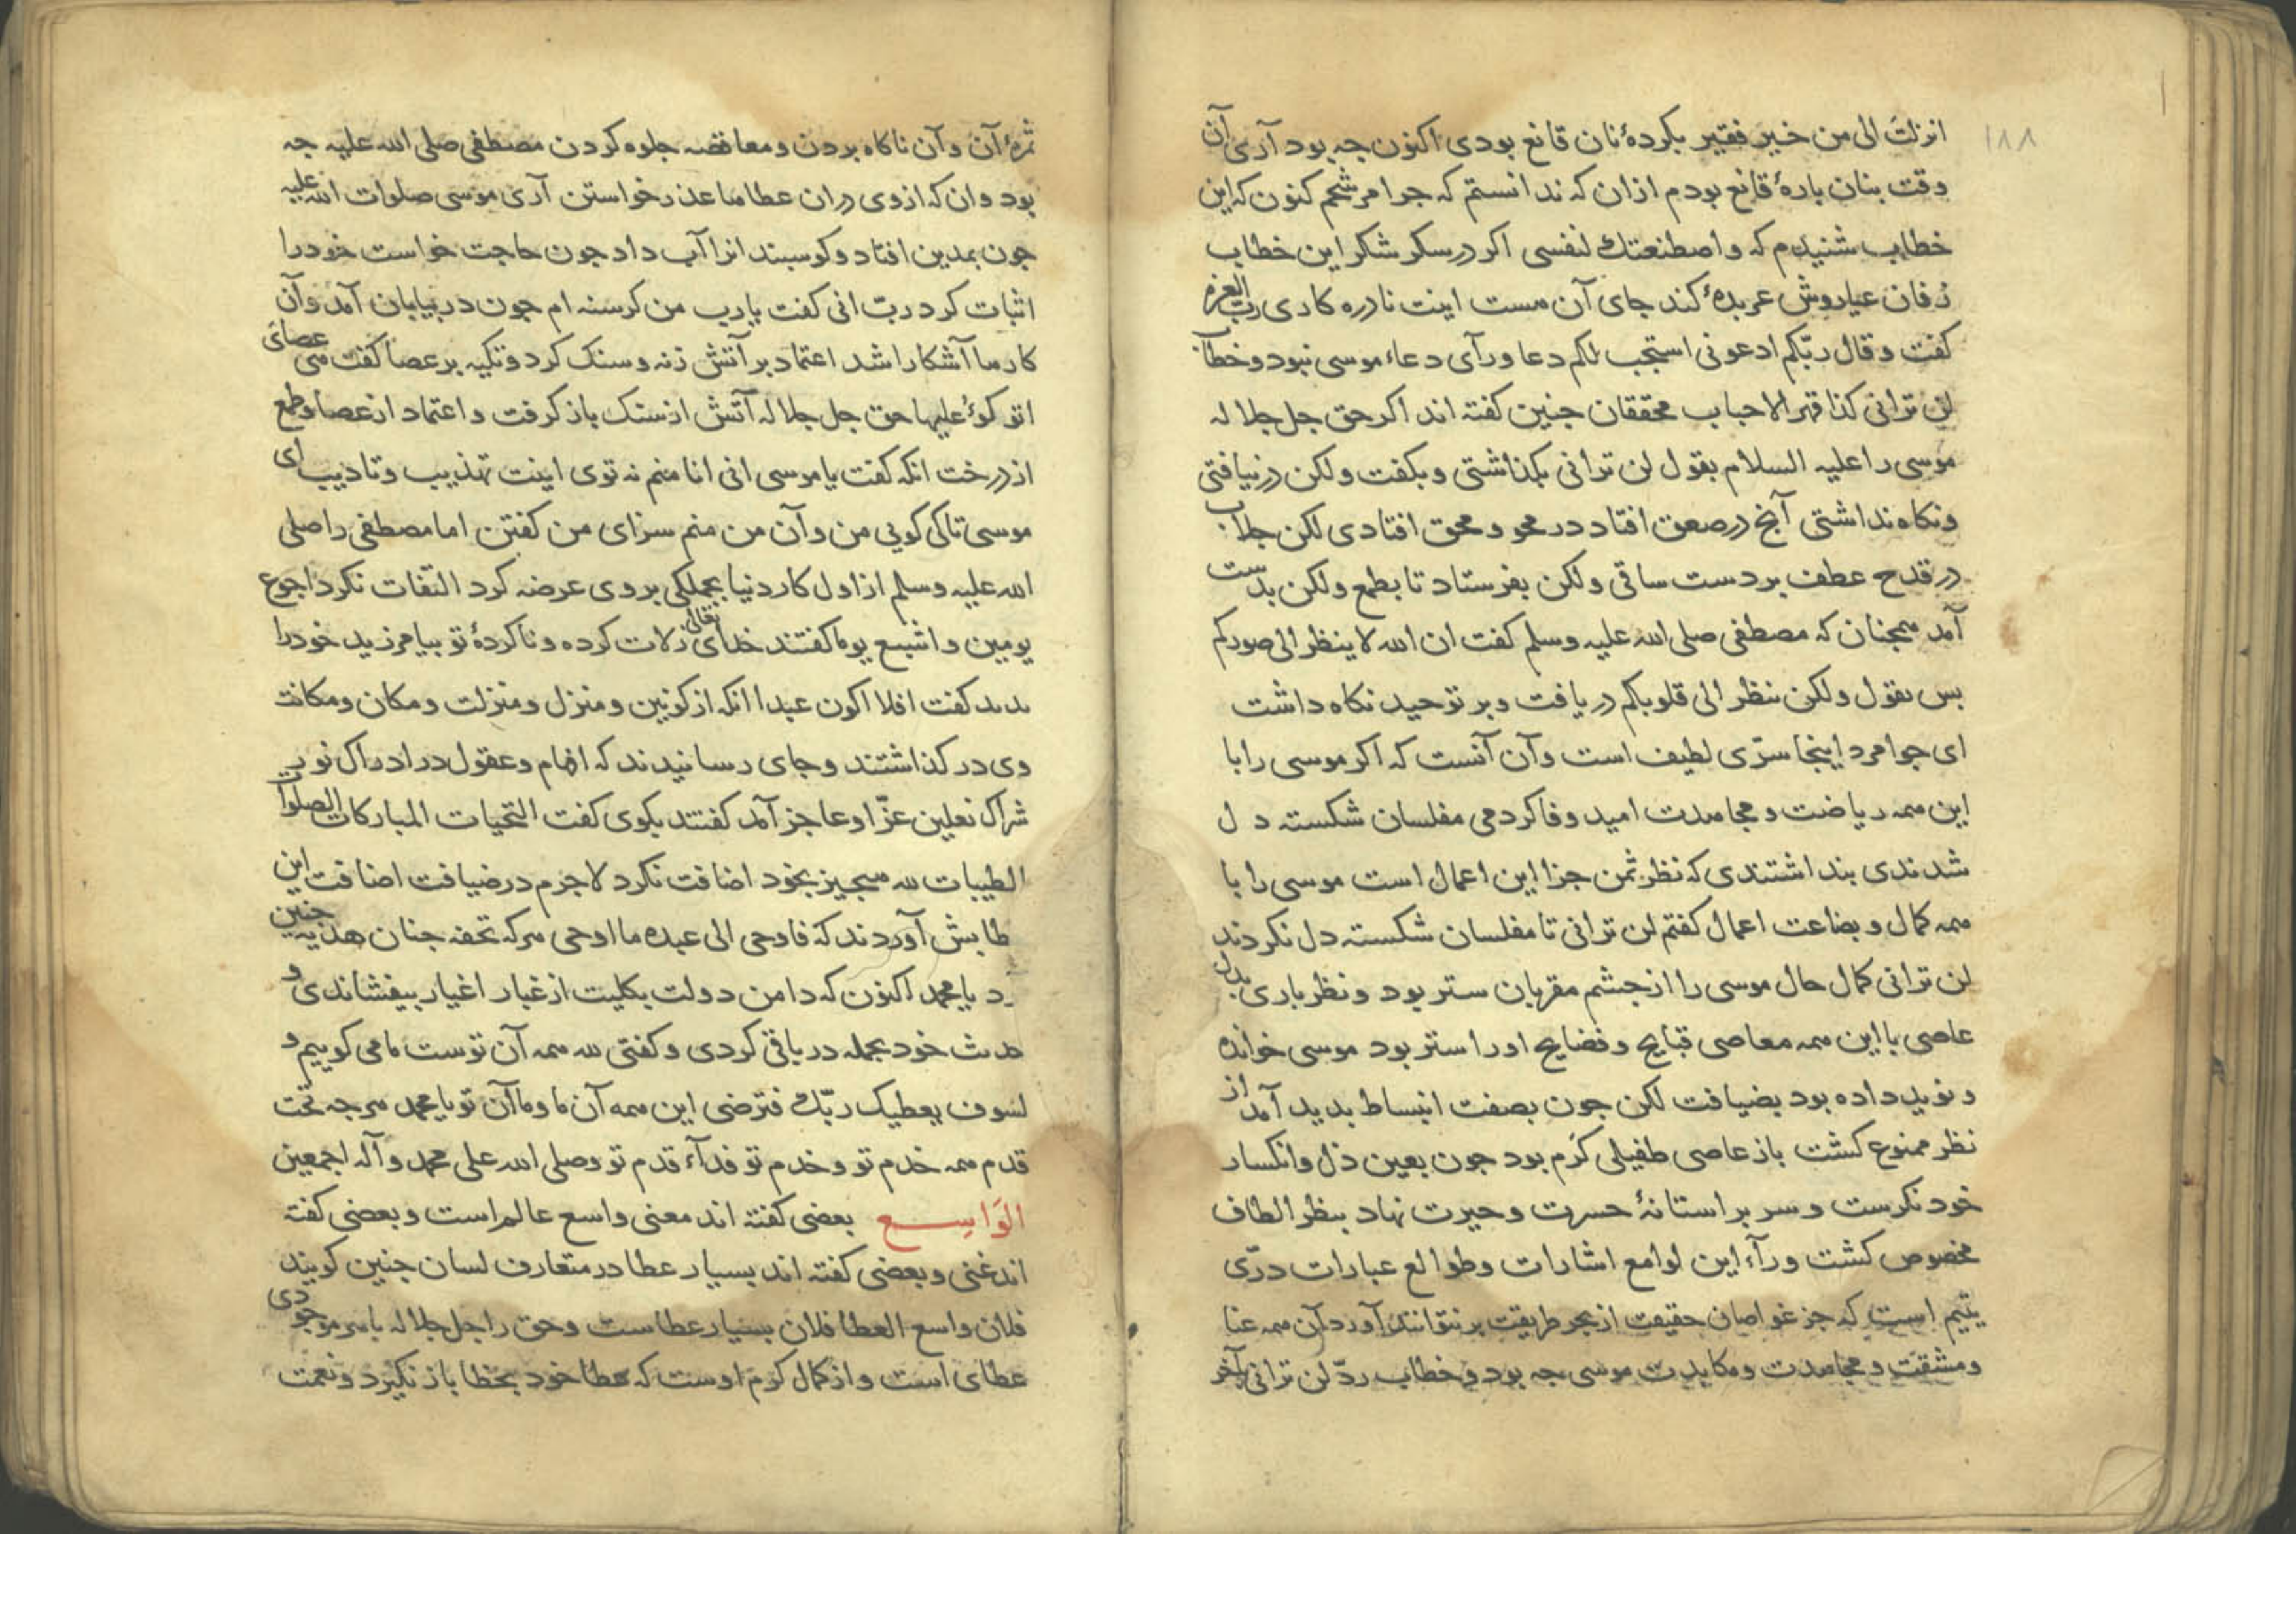 ۱۸۸
انزلت الی من خیر فقیر بکردهٔ نان قانع بودی اکنون جه بود آری آن
وقت بنان بارهٔ قانع بودم ازان که ندانستم که جوامرشحم کنون که این
خطاب شنیدم که واصطنعتك لنفسی اکر در سکر شکر این خطاب
زفان عیاروش عربدهٔ کند جای آن مست اینت نادره کاری رب العزة
کفت وقال ربّکم ادعونی استجب لکم دعا ورآی دعاء موسی نبود وخطاب
لن ترانی کذا قهر الاحباب محققان جنین کفته اند اکر حق جل جلاله
موسی را علیه السلام بقول لن ترانی بکذاشتی وبکفت ولکن درنیافتی
ونکاه نداشتی آنج در صعق افتاد در محو ومحق افتادی لکن جلاب
در قدح عطف بر دست ساقی ولکن بفرستاد تا بطمع ولکن بدست
آمد ممجنان که مصطفی صلی الله علیه وسلم کفت ان الله لا ینظر الی صورکم
بس بقول ولکن ینظر الی قلوبکم دریافت وبر توحید نکاه داشت
ای جوامرد اینجا سرّی لطیف است وآن آنست که اکر موسی را با
این ممه ریاضت ومجامدت امید وفا کردمی مفلسان شکسته دل
شدندی بنداشتندی که نظر ثمن جزا این اعمال است موسی را با
ممه کمال وبضاعت اعمال کفتم لن ترانی تا مفلسان شکسته دل نکردند
لن ترانی کمال حال موسی را از جشم مقربان ستر بود ونظر باری بدل
عاصی با این ممه معاصی قبایح وفضایح اورا ستر بود موسی خوانده
ونوید داده بود بضیافت لکن جون بصفت انبساط بدید آمد از
نظر ممنوع کشت باز عاصی طفیلی کرم بود جون بعین ذل وانکسار
خود نکرست وسر بر استانهٔ حسرت وحیرت نهاد بنظر الطاف
مخصوص کشت ورآء این لوامع اشارات وطوالع عبارات درّی
یتیم است که جز غواصان حقیقت از بحر طریقت برنتوانند آورد آن ممه عنا
ومشقت ومجامدت ومکابدت موسی جه بود وخطاب ردّ لن ترانی بآخر
ثمرهٔ آن وآن ناکاه بردن ومعافصه جلوه کردن مصطفی صلی الله علیه جه
بود وان که از وی دران عطاما عذر خواستن آری موسی صلوات الله علیه
جون بمدین افتاد وکوسبند انرا آب داد جون حاجت خواست خودرا
اثبات کرد ربّ انی کفت یارب من کرسنه ام جون در بیابان آمد وآن
کارما آشکارا شد اعتماد بر آتش زنه وسنک کرد وتکیه بر عصا کفت می عصای
اتوکؤ علیها حق جل جلاله آتش از سنک باز کرفت واعتماد از عصا وطمع
از درخت انکه کفت یا موسی انی انا منم نه توی اینت تهذیب وتادیب ای
موسی تا کی کویی من وآن من منم سزای من کفتن اما مصطفی را صلی
الله علیه وسلم از اول کار دنیا بجملکی بر وی عرضه کرد التفات نکرد اجوع
یومین واشبع یوما کفتند خدای تعالی زلات کرده وناکردهٔ تو بیامرزید خودرا
ندید کفت افلا اکون عبدا انکه از کونین ومنزل ومنزلت ومکان ومکانت
وی درکذاشتند وجای رسانیدند که افهام وعقول در ادراک نور
شراک نعلین عزّ او عاجز آمد کفتند بکوی کفت التحیات المبارکات الصلوات
الطیبات لله میجیز بخود اضافت نکرد لاجرم در ضیافت اضافت این
طابش آوردند که فاوحی الی عبده ما اوحی مرکه تحفه جنان هدیه جنین
د یا محمد اکنون که دامن دولت بکلیت از غبار اغیار بیفشاندی و
حدیث خود بجمله در باقی کردی وکفتی لله ممه آن توست ما می کوییم و
لسوف یعطیک ربّک فترضی این ممه آن ما وما آن تو یا محمد مرجه تحت
قدم ممه خدم تو وخدم تو فدآء قدم تو وصلی الله علی محمد وآله اجمعین
الوَاسِــع بعضی کفته اند معنی واسع عالم است وبعضی کفته
اند غنی وبعضی کفته اند بسیار عطا در متعارف لسان جنین کویند
فلان واسع العطا فلان بسیار عطاست وحق را جل جلاله با مر موجودی
عطای است واز کمال کرم اوست که عطا خود بخطا باز نکیرد ونعمت